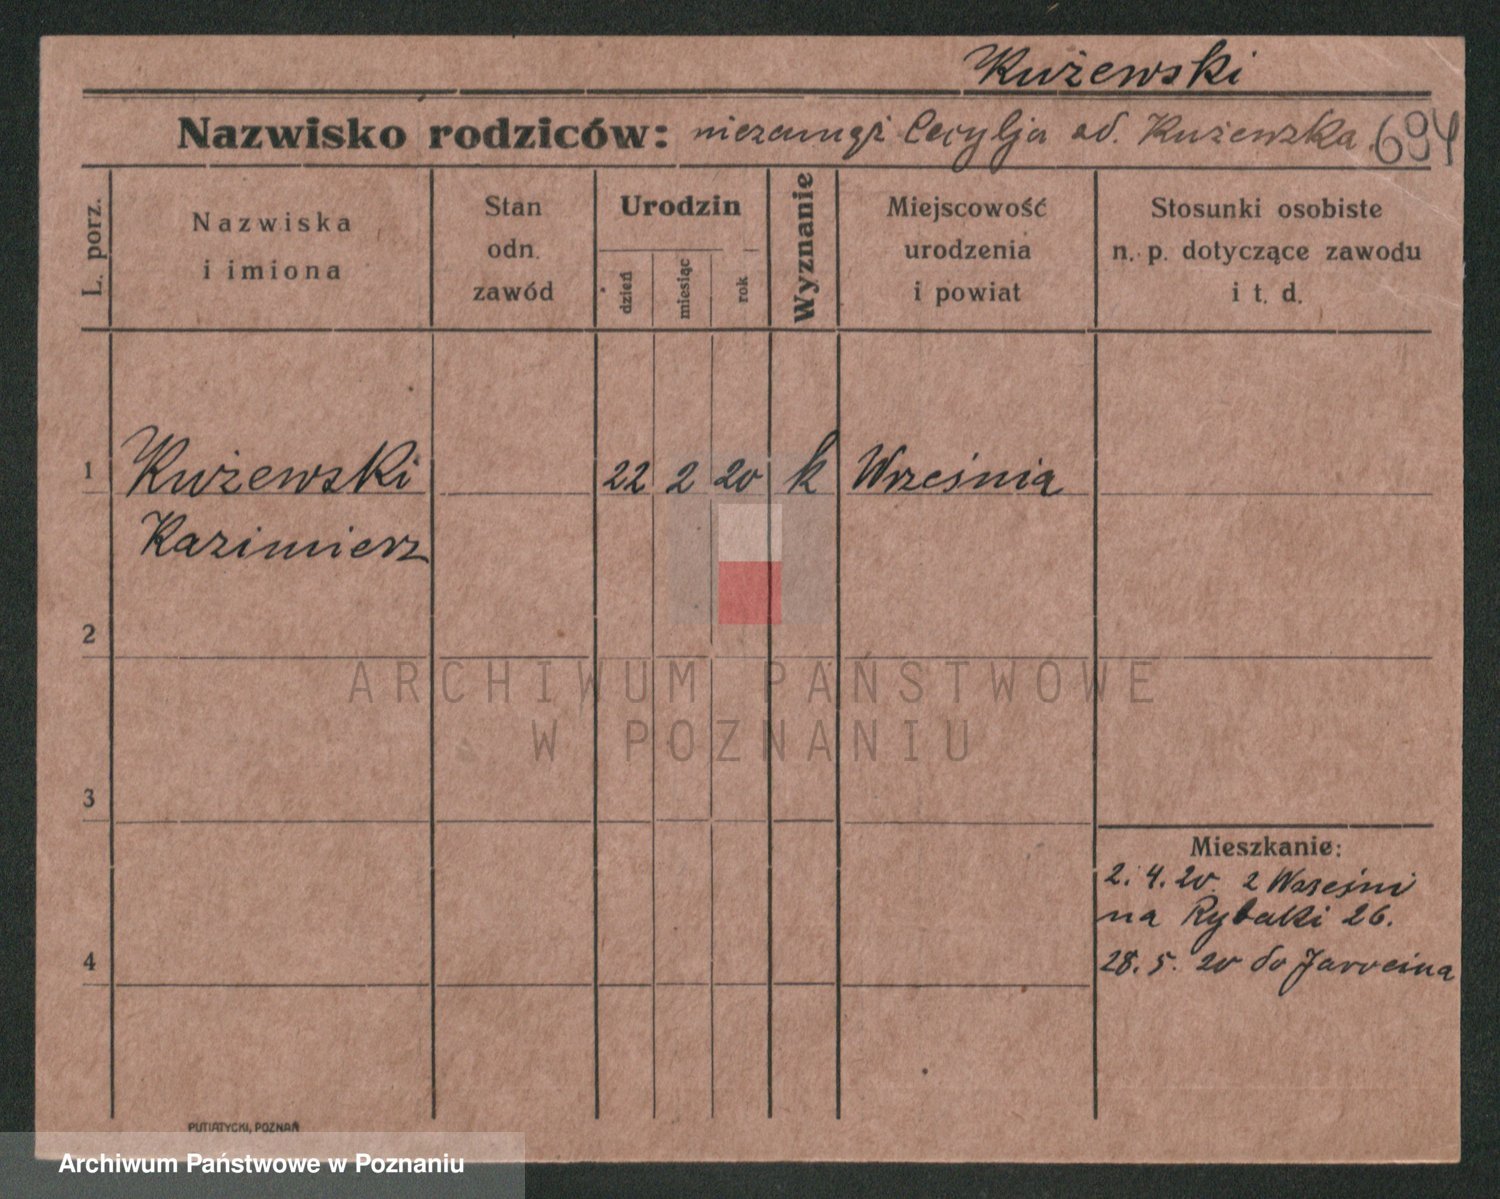 Kużewski
Nazwisko rodziców: niezamęż Cecylja od. Kużewska 694
L. porz.
Nazwiska
i imiona
Stan
odn.
zawód
Urodzin
dzień
miesiąc
rok
Wyznanie
Miejscowość
urodzenia
i powiat
Stosunki osobiste
n. p. dotyczące zawodu
i t. d.
1 Kużewski 22 2 20 k Września
Kazimierz
2
ARCHIWUM PAŃSTWOWE
W POZNANIU
3
Mieszkanie:
2. 4. 20. z Wrześni
na Rybaki 26.
4
28. 5. 20 do Jarocina
PUTIATYCKI, POZNAŃ
Archiwum Państwowe w Poznaniu